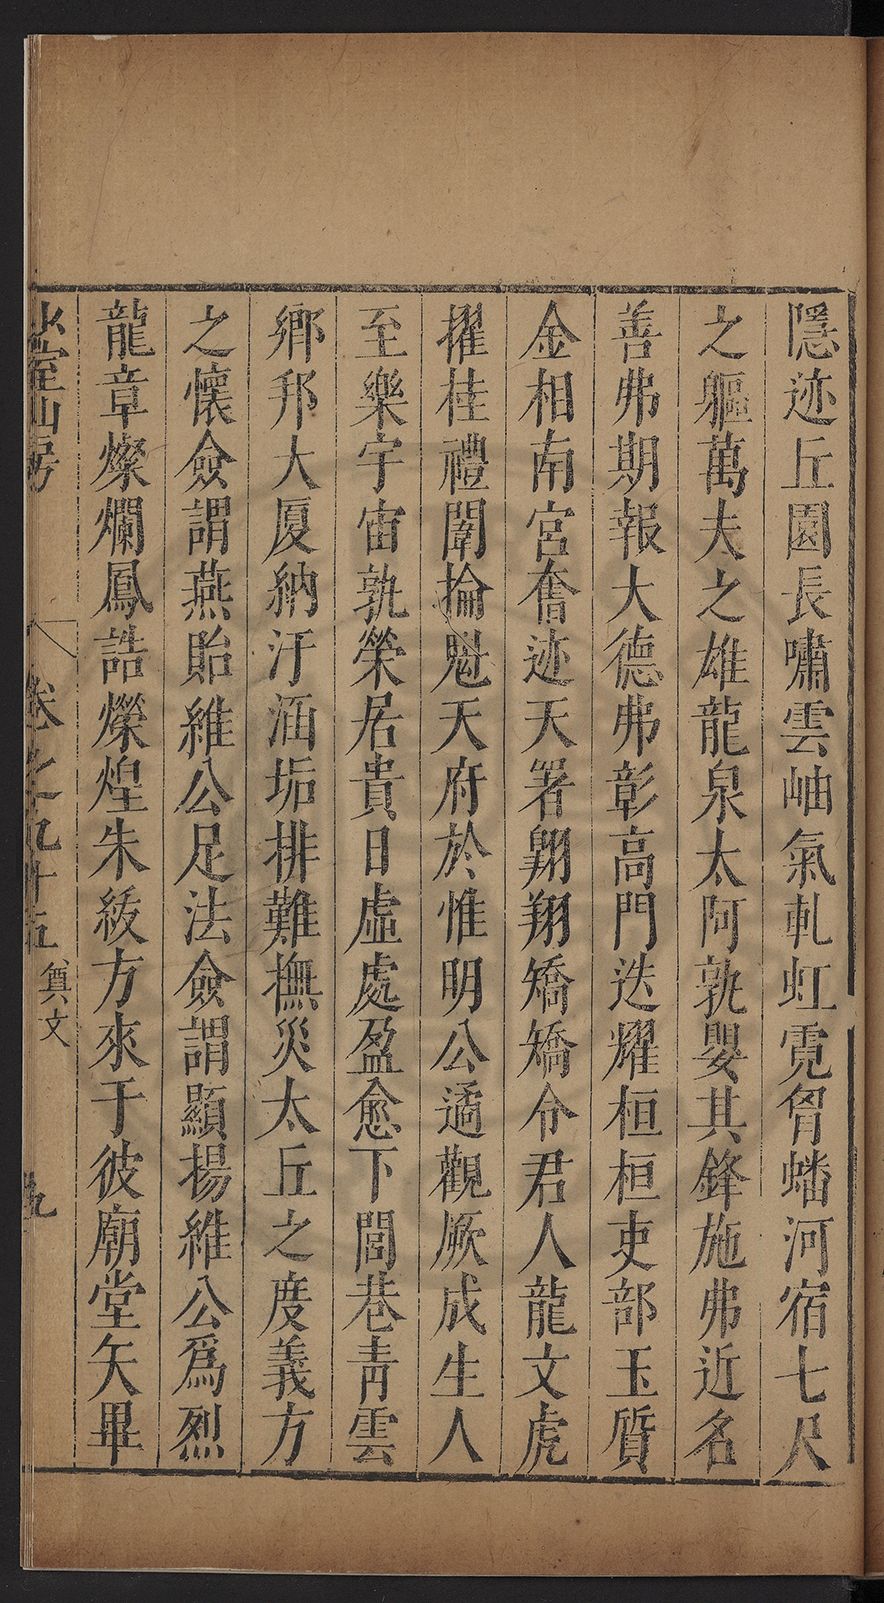 隱迹丘園長嘯雲岫氣軋虹霓胷蟠河宿七尺
之軀萬夫之雄龍泉太阿孰嬰其鋒施弗近名
善弗期報大德弗彰高門迭耀桓桓吏部玉質
金相南宮奮迹天署翺翔矯矯令君人龍文虎
擢桂禮闈掄魁天府於惟明公遹觀厥成生人
至樂宇宙孰榮居貴日虛處盈愈下閭巷青雲
鄉邦大厦納汙涵垢排難撫災太丘之度義方
之懷僉謂燕貽維公足法僉謂顯揚維公爲烈
龍章燦爛鳳誥爍煌朱紱方來于彼廟堂矢畢
山房 卷之九十五 奠文 九